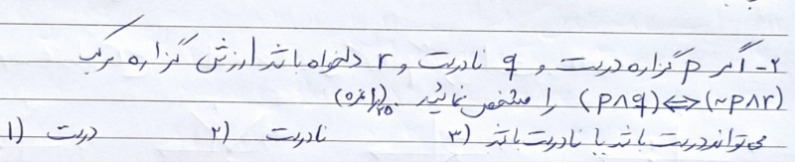 ۲- اگر p گزاره درست و q نادرست و r دلخواه باشد ارزش گزاره مرکب
(p∧q)⇔(~p∧r) را مشخص نمائید. (۰/۲۵ نمره)
۱) درست ۲) نادرست ۳) می‌تواند درست باشد یا نادرست باشد